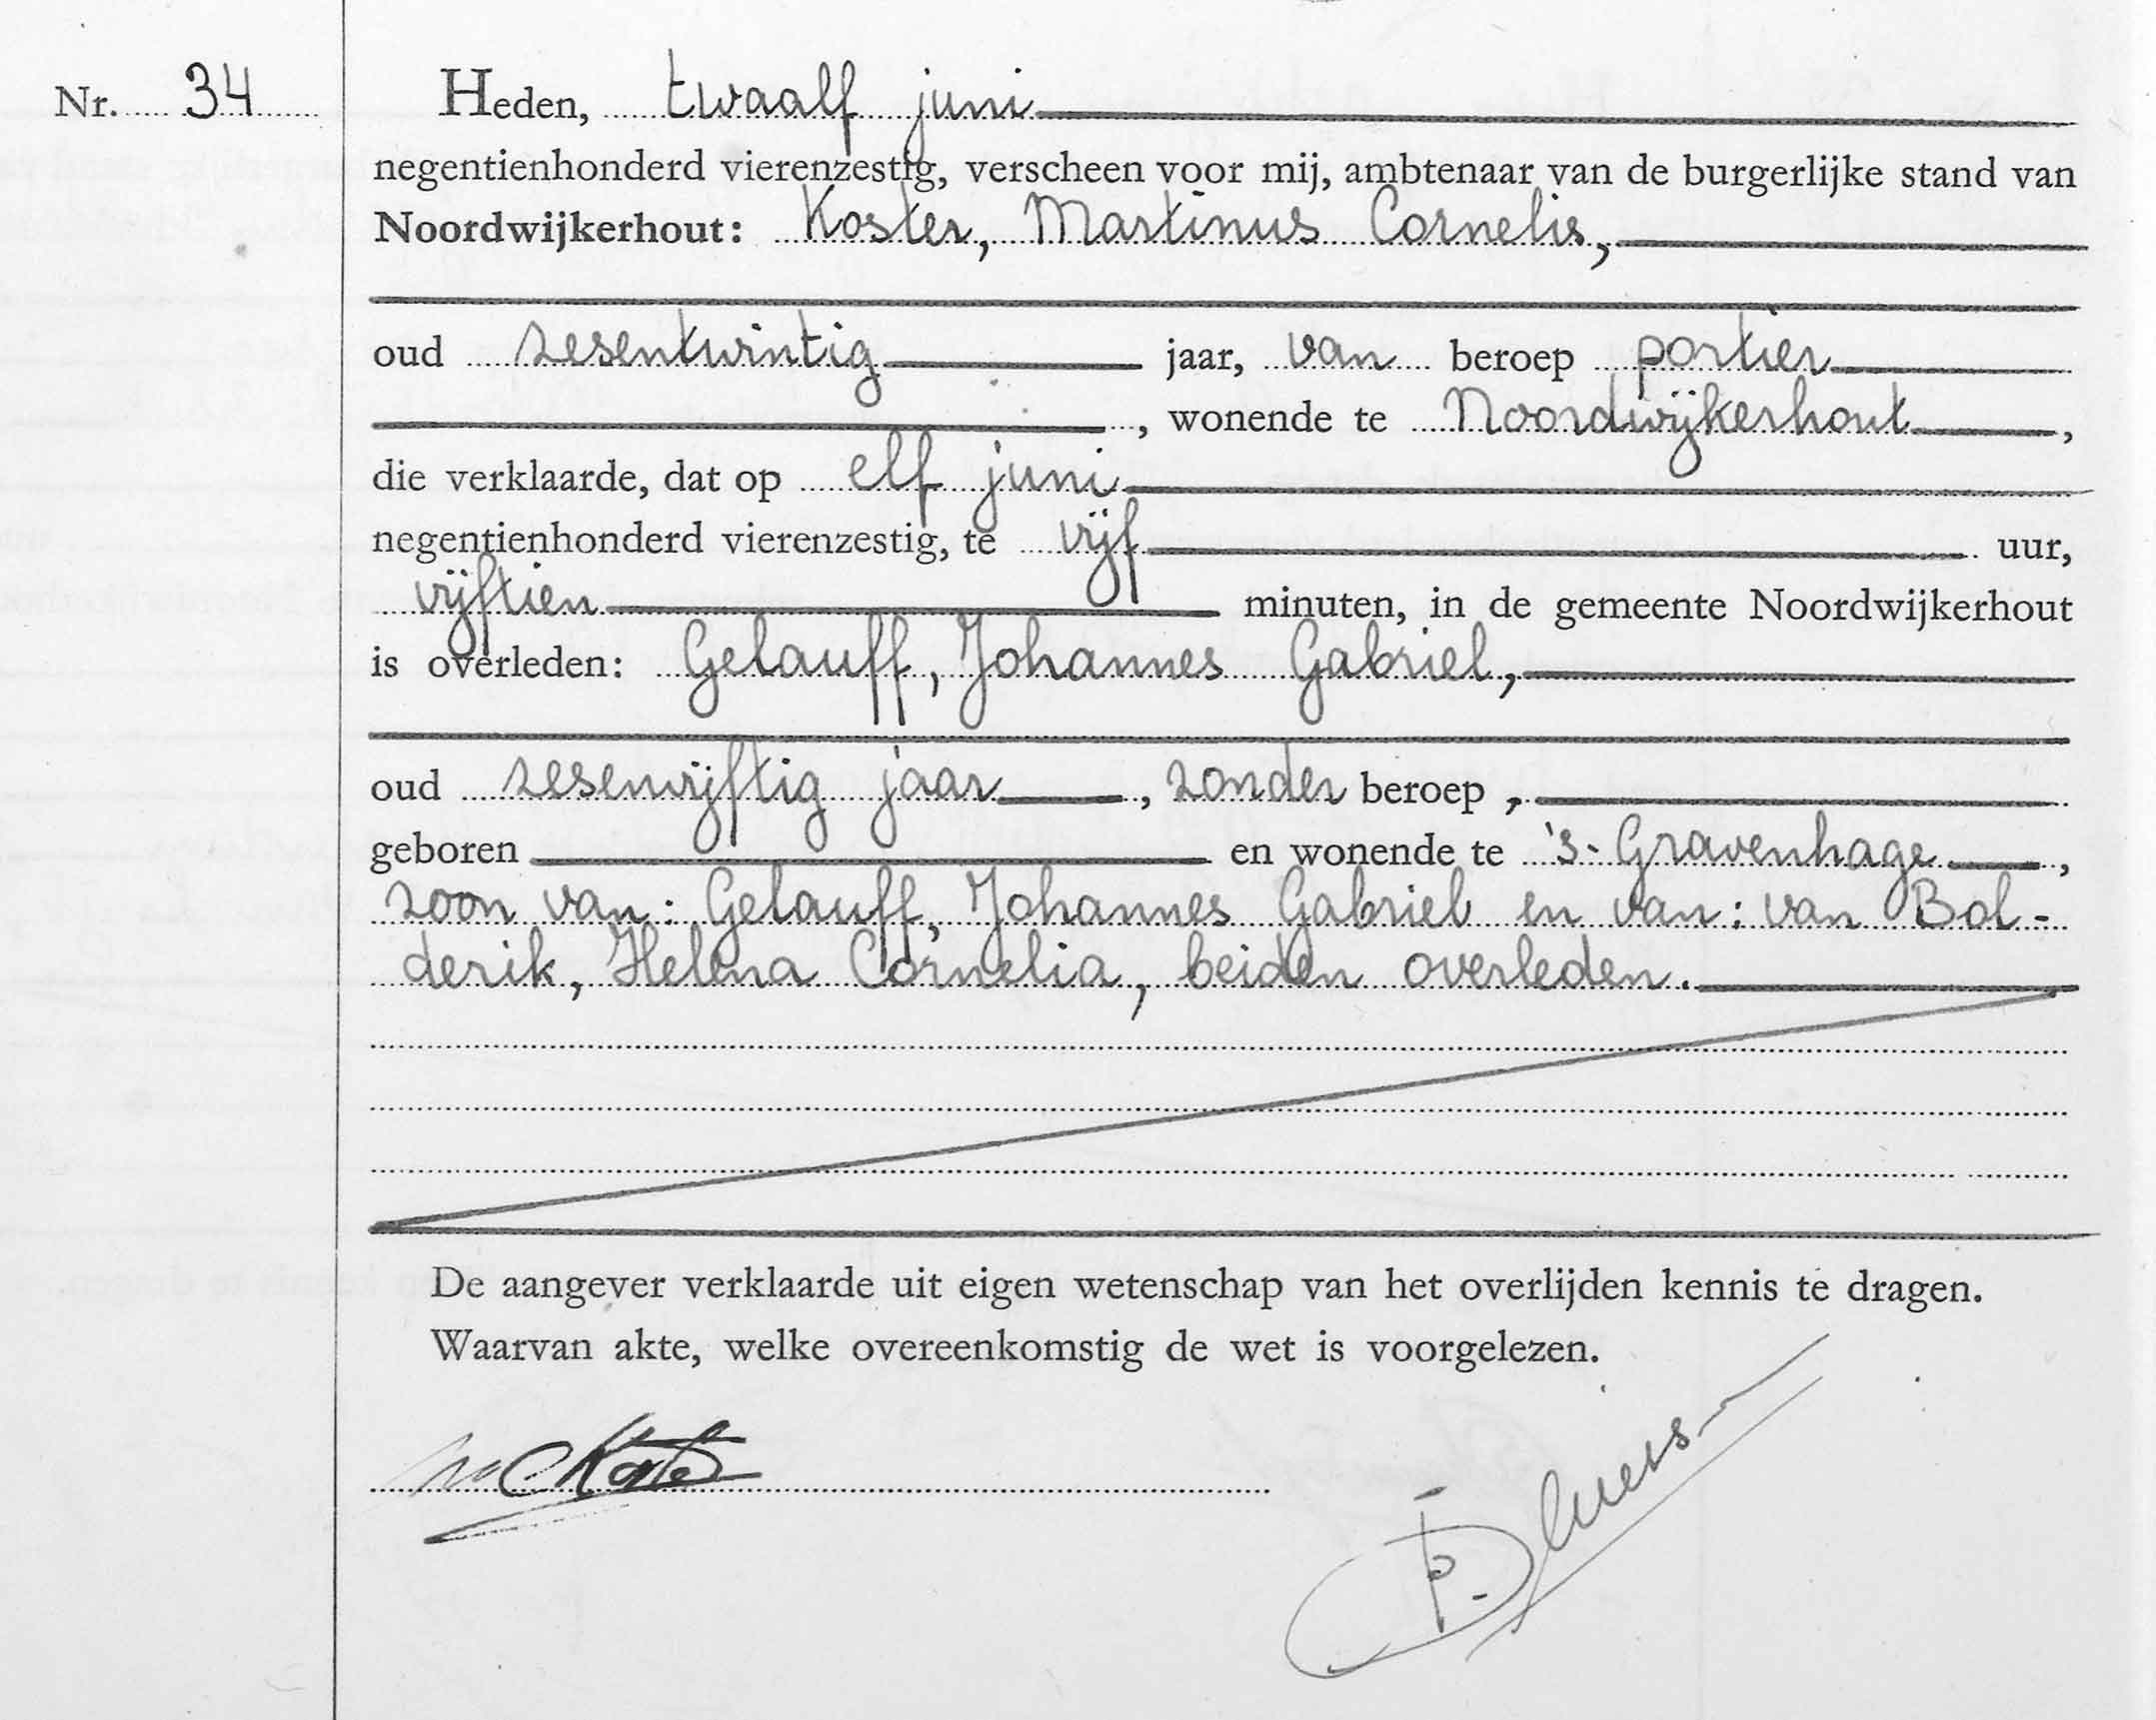 Nr. 34
Heden, twaalf juni
negentienhonderd vierenzestig, verscheen voor mij, ambtenaar van de burgerlijke stand van
Noordwijkerhout: Koster, Martinus Cornelis,
oud zesentwintig jaar, van beroep portier
, wonende te Noordwijkerhout,
die verklaarde, dat op elf juni
negentienhonderd vierenzestig, te vijf uur,
vijftien minuten, in de gemeente Noordwijkerhout
is overleden: Gelauff, Johannes Gabriel,
oud zesenvijftig jaar, zonder beroep,
geboren en wonende te 's-Gravenhage,
zoon van: Gelauff, Johannes Gabriel en van: van Bol-
derik, Helena Cornelia, beiden overleden.
De aangever verklaarde uit eigen wetenschap van het overlijden kennis te dragen.
Waarvan akte, welke overeenkomstig de wet is voorgelezen.
MCKoster